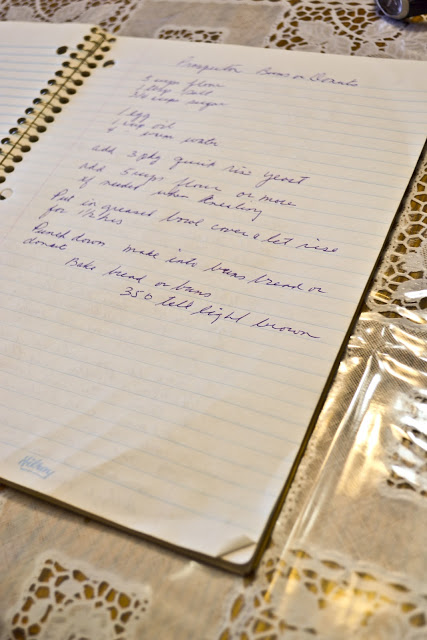 Prospector Buns or Donuts
5 cups flour
1 tbsp salt
3/4 cups sugar
1 egg
1 cup oil
4 " warm water
add 3 pkg quick rise yeast
add 5 cups flour or more
if needed when kneeding
Put in greased bowl cover & let rise
for 1½ hrs
Punch down make into buns bread or
donuts
Bake bread or buns
350 till light brown
Hilroy